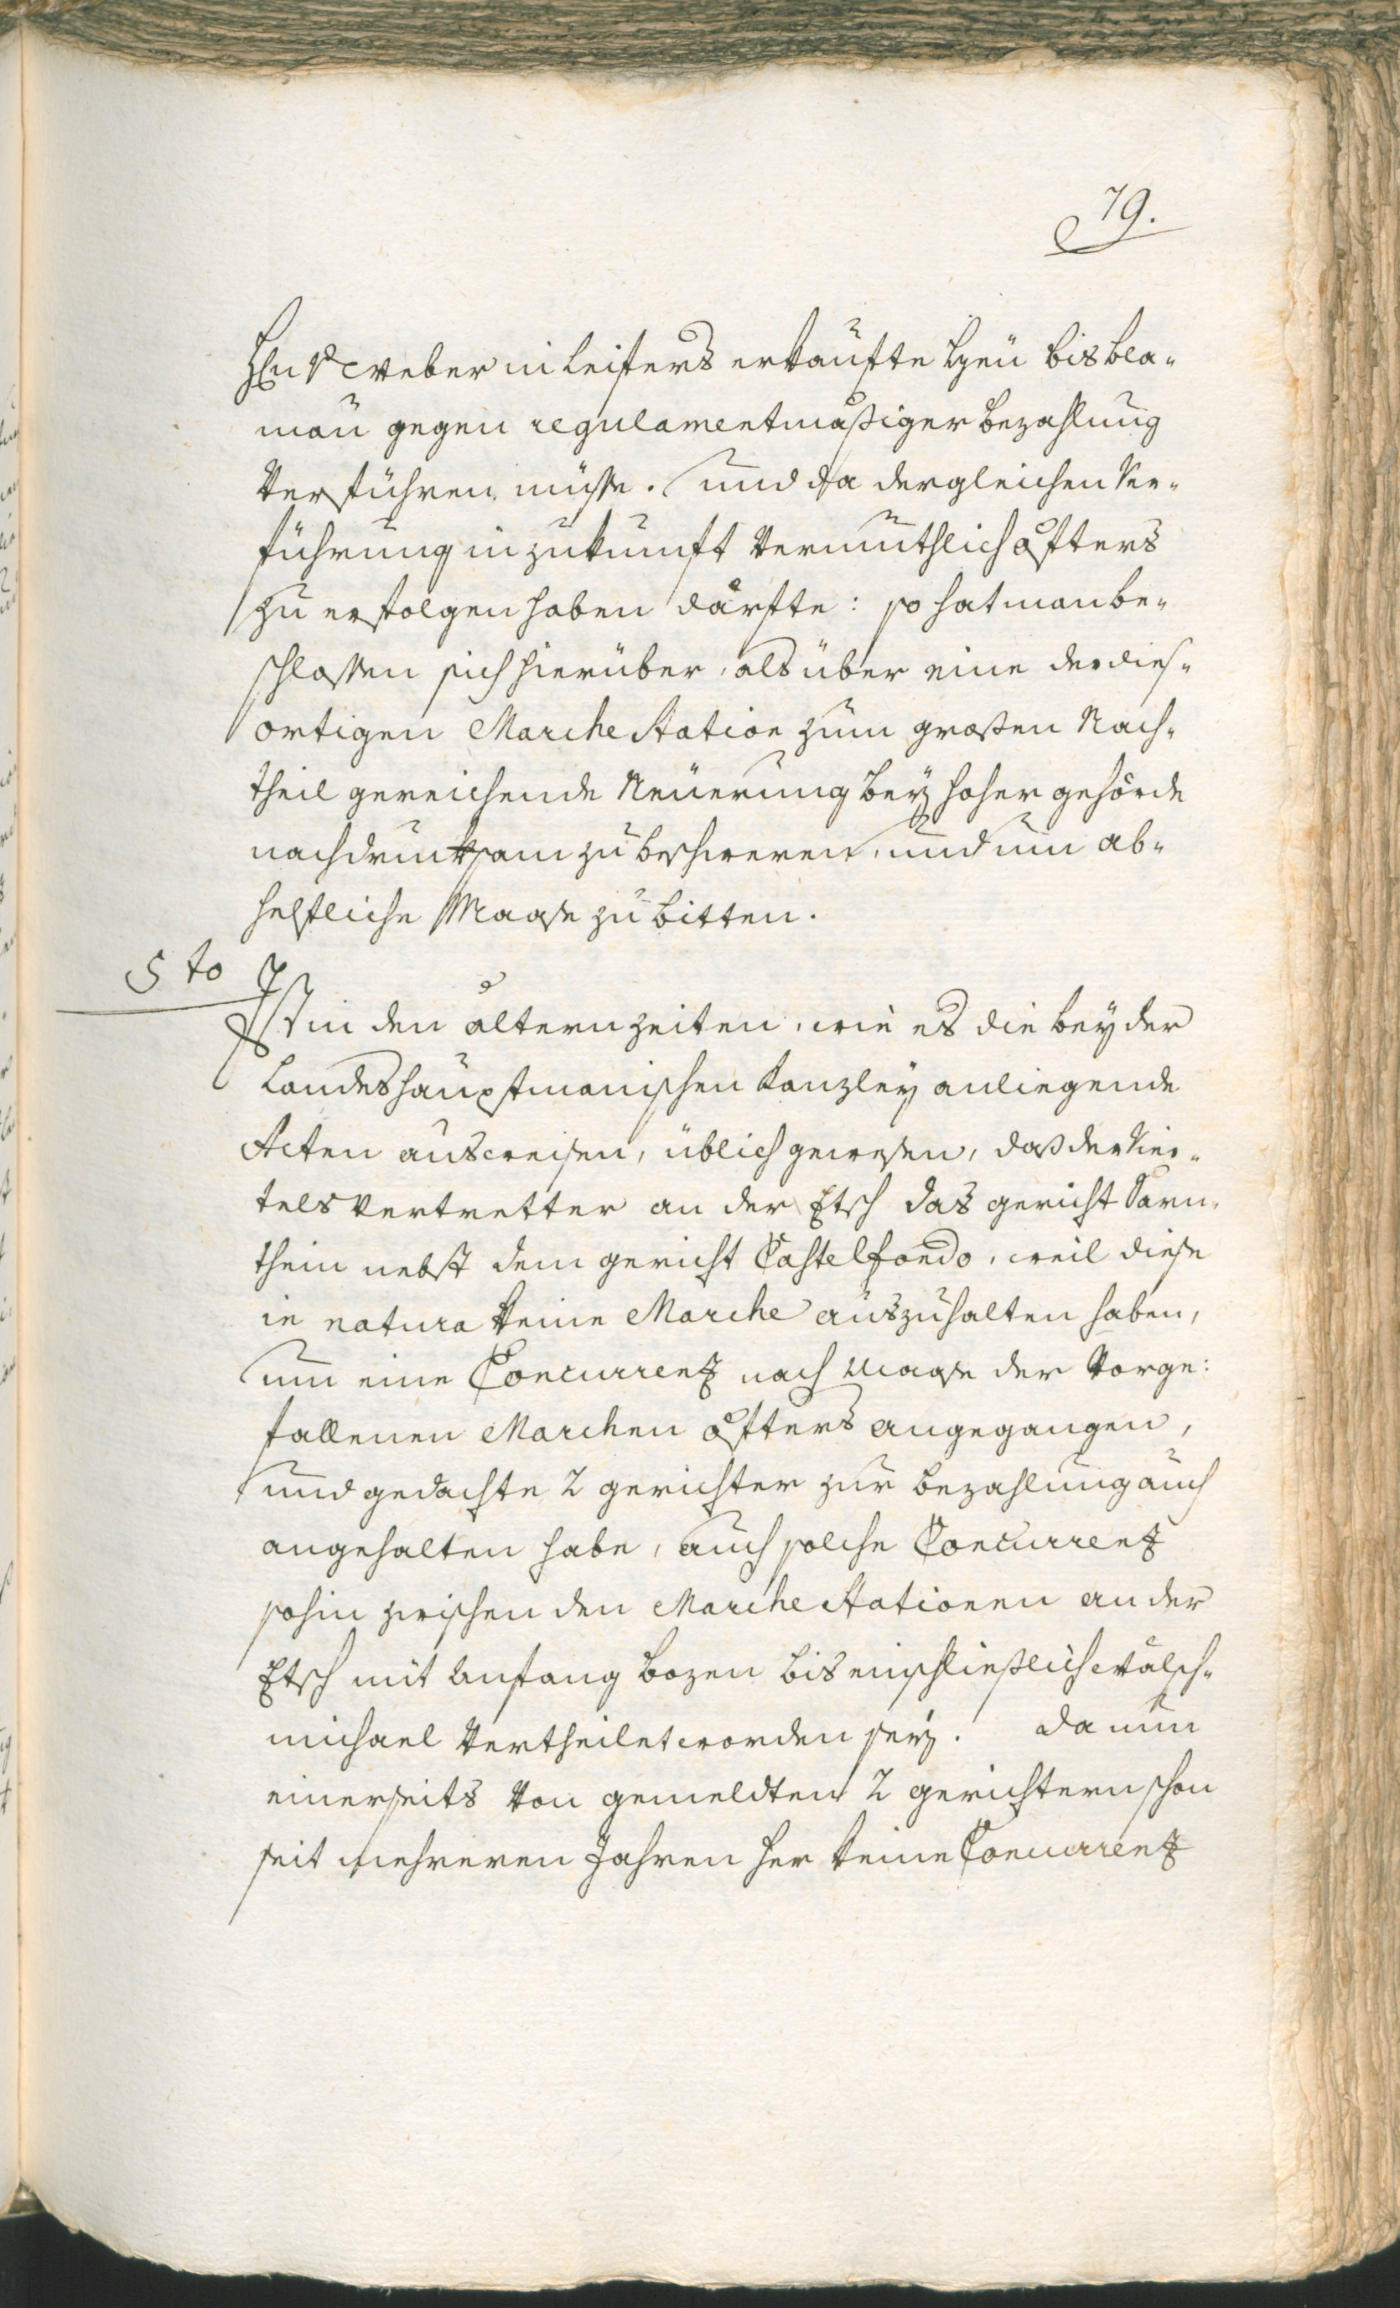 79.
Hln v weber in Leifers erkaufte Heü bis bra-
man gegen regulamentmäßiger bezahlung
Verführen müsse. und da dergleichen Ver-
führung in zukunft Vermuthlich öfters
zu erfolgen haben därfte: so hat man be-
schlossen sich hierüber, als über eine der dies-
ortigen Marche Station zum großen Nach-
theil gereichende Neüerung bey hoher gehörde
nachdruksam zu beschweren, und um ab-
helfliche Maase zu bitten.
5to
Ist in den ältern zeiten, wie es die bey der
Landeshauptmanischen Kanzley anliegende
Acten ausweisen, üblich gewesen, daß der Vier-
tels Vertretter an der Etsch das gericht Sarn-
thein nebst dem gericht Castelfondo, weil diese
in natura keine Marche auszuhalten haben,
um eine Concurrenz nach Maase der Vorge:
fallenen Marchen öfters angegangen,
und gedachte 2 gerichter zur bezahlung auch
angehalten habe, auch solche Concurrenz
sohin zwischen den Marche Stationen an der
Etsch mit Anfang bozen bis einschließlich wälsch-
michael Vertheilet worden seÿ. Da nun
einerseits Von gemeldten 2 gerichtern schon
seit mehreren Jahren her keine Concurrenz